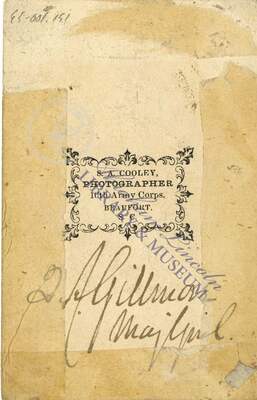 S. A. COOLEY,
PHOTOGRAPHER
10th Army Corps,
BEAUFORT,
Lincoln
& MUSEUM
Q A Gillmore
Maj Genl.